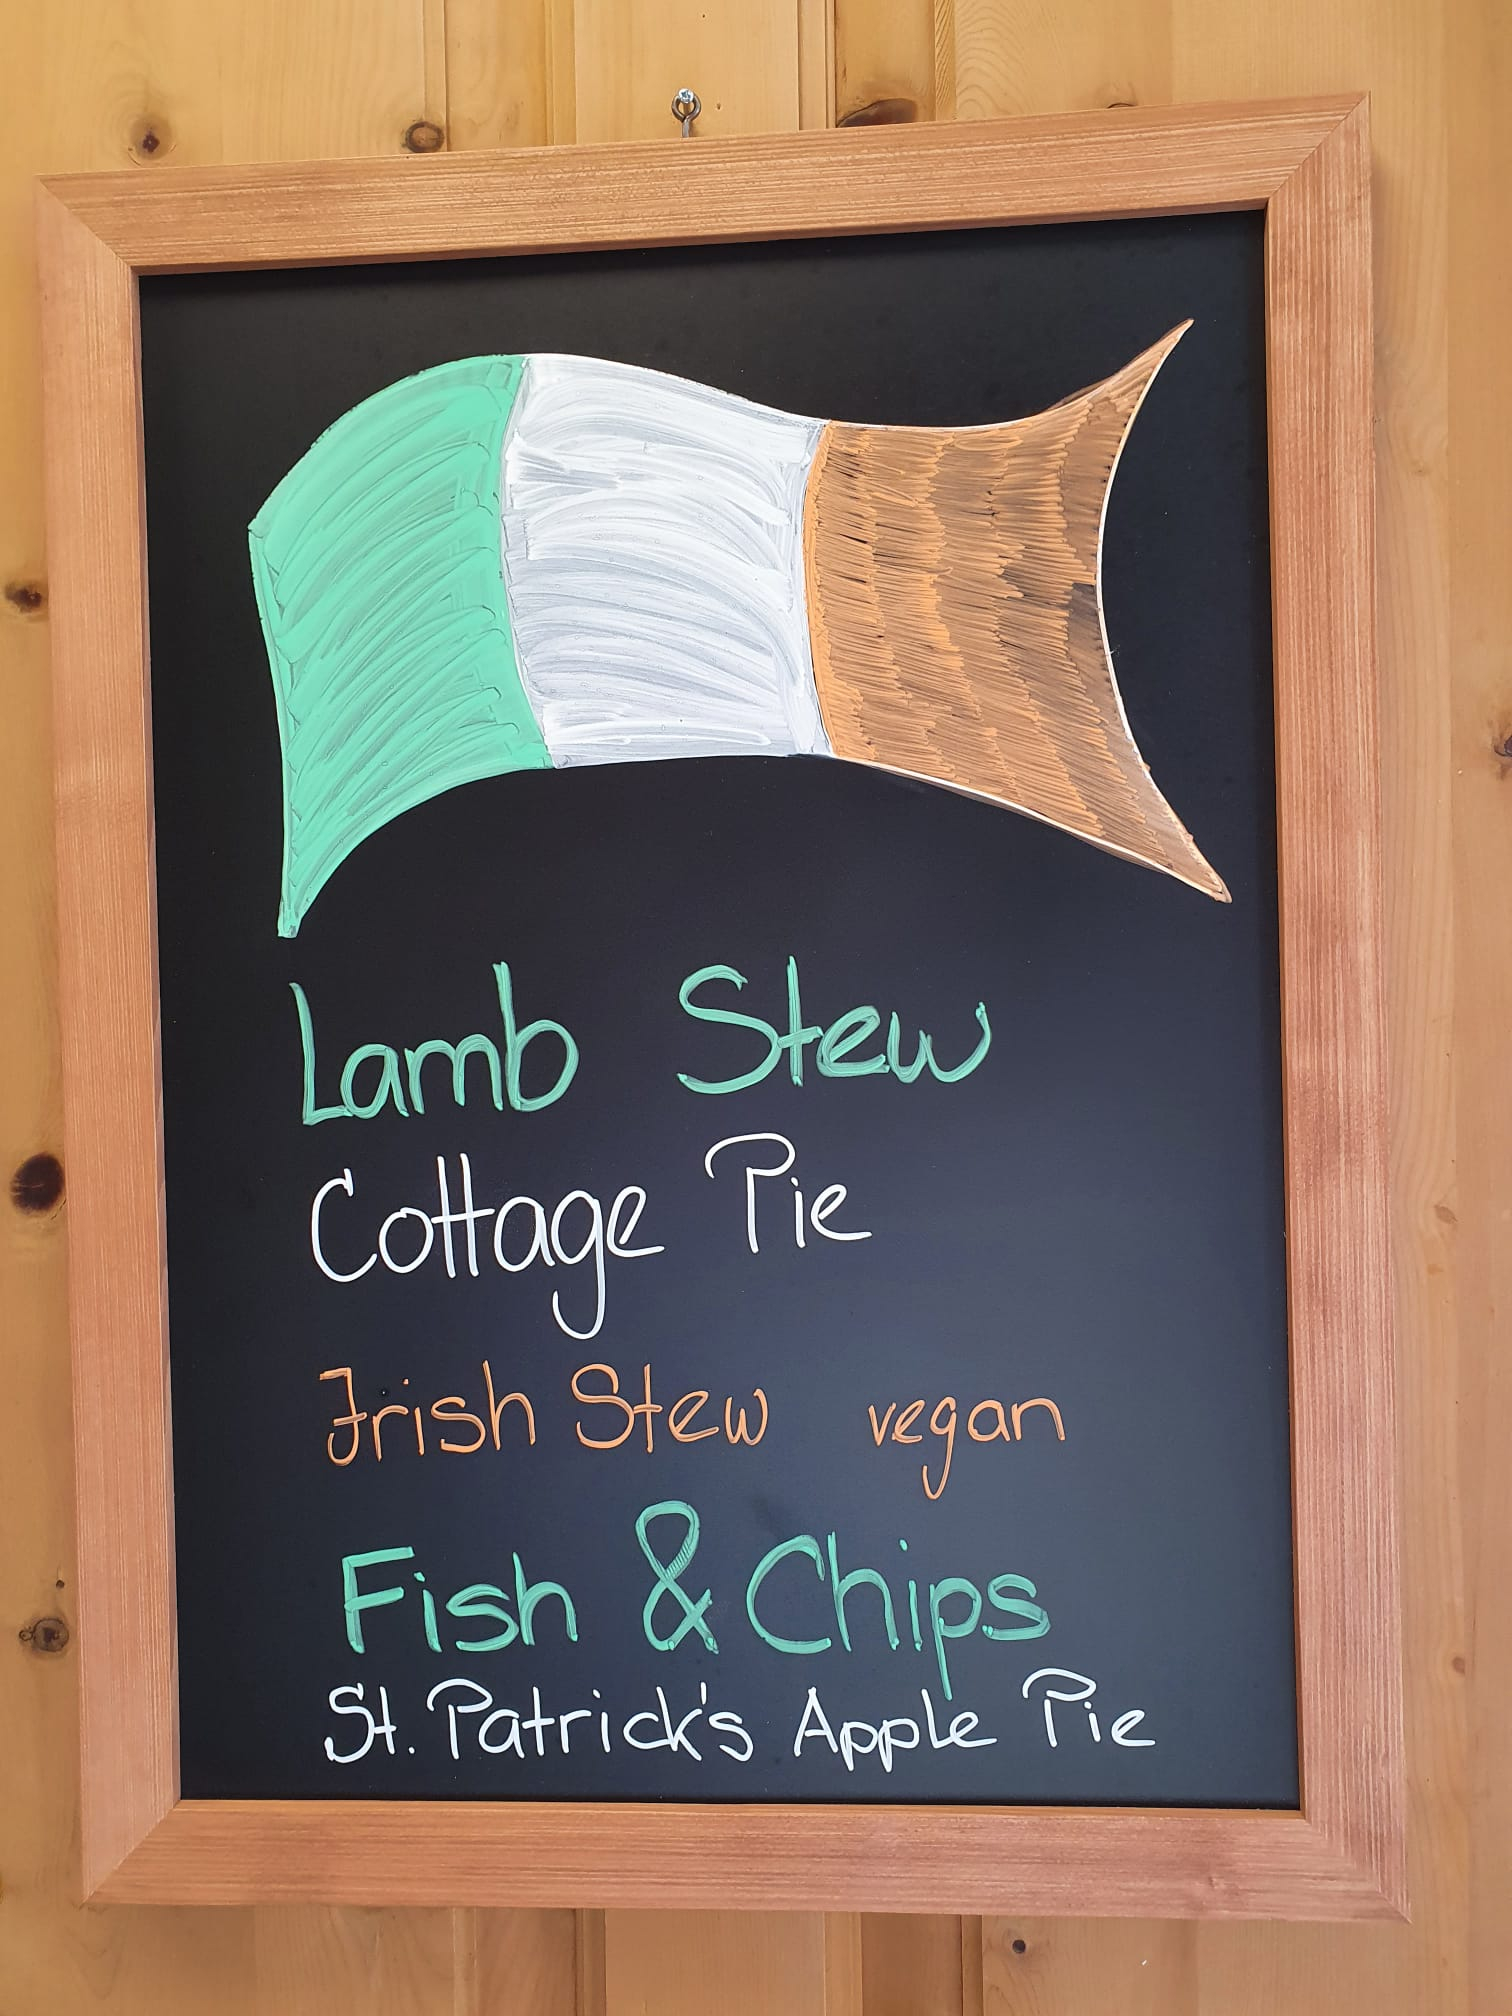 Lamb Stew
Cottage Pie
Irish Stew vegan
Fish & Chips
St. Patrick's Apple Pie